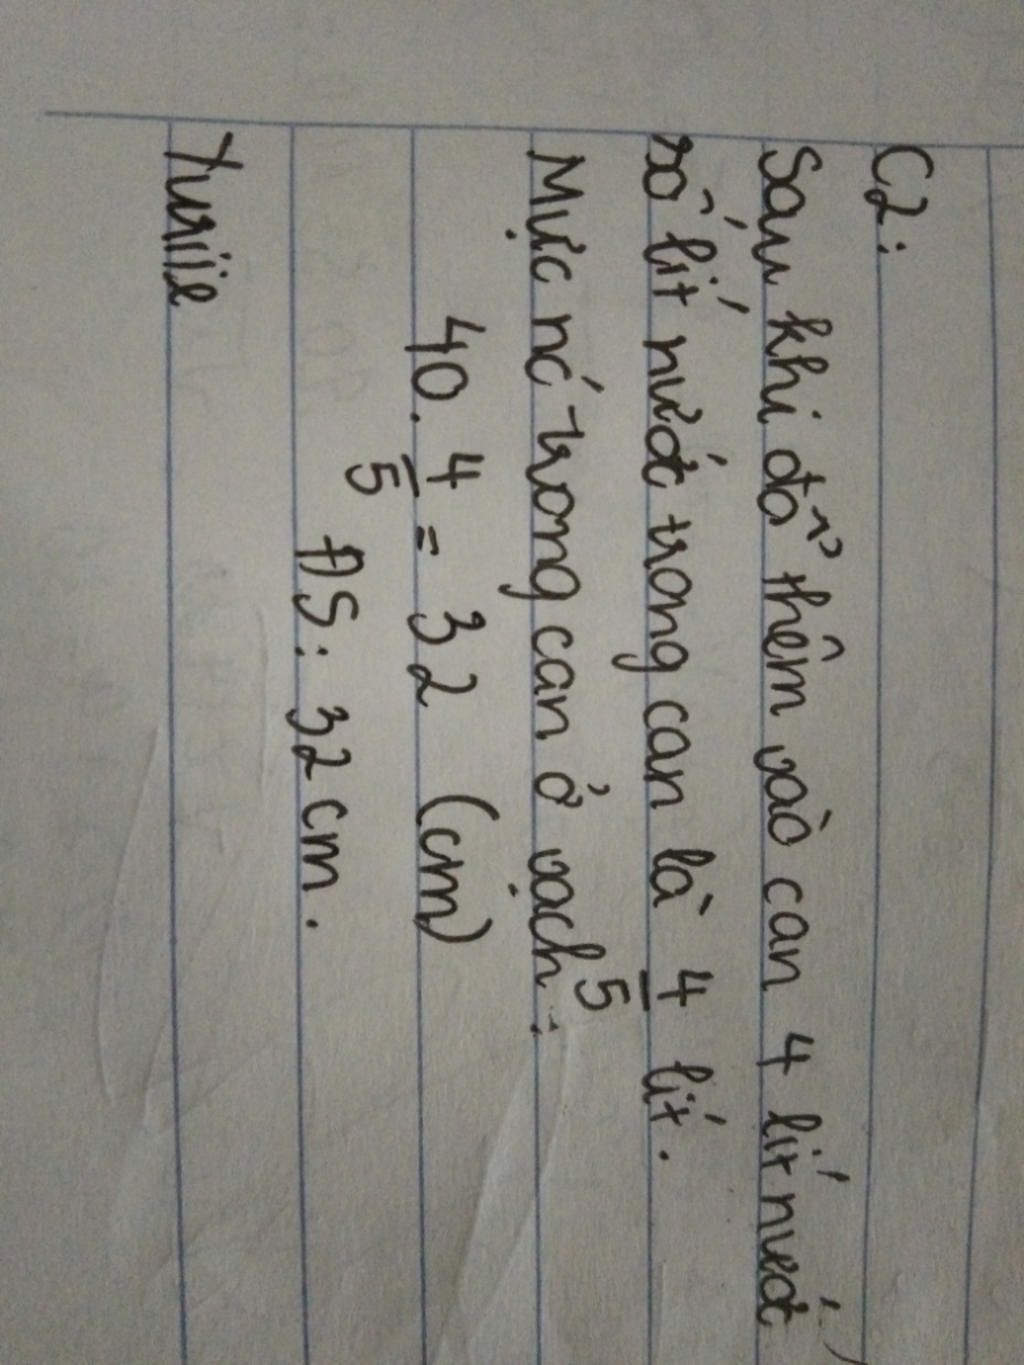 C2:
Sau khi đổ thêm vào can 4 lít nước,
số lít nước trong can là 4/5 lít.
Mực nc trong can ở vạch:
40. 4/5 = 32 (cm)
ĐS: 32 cm.
Yuriie